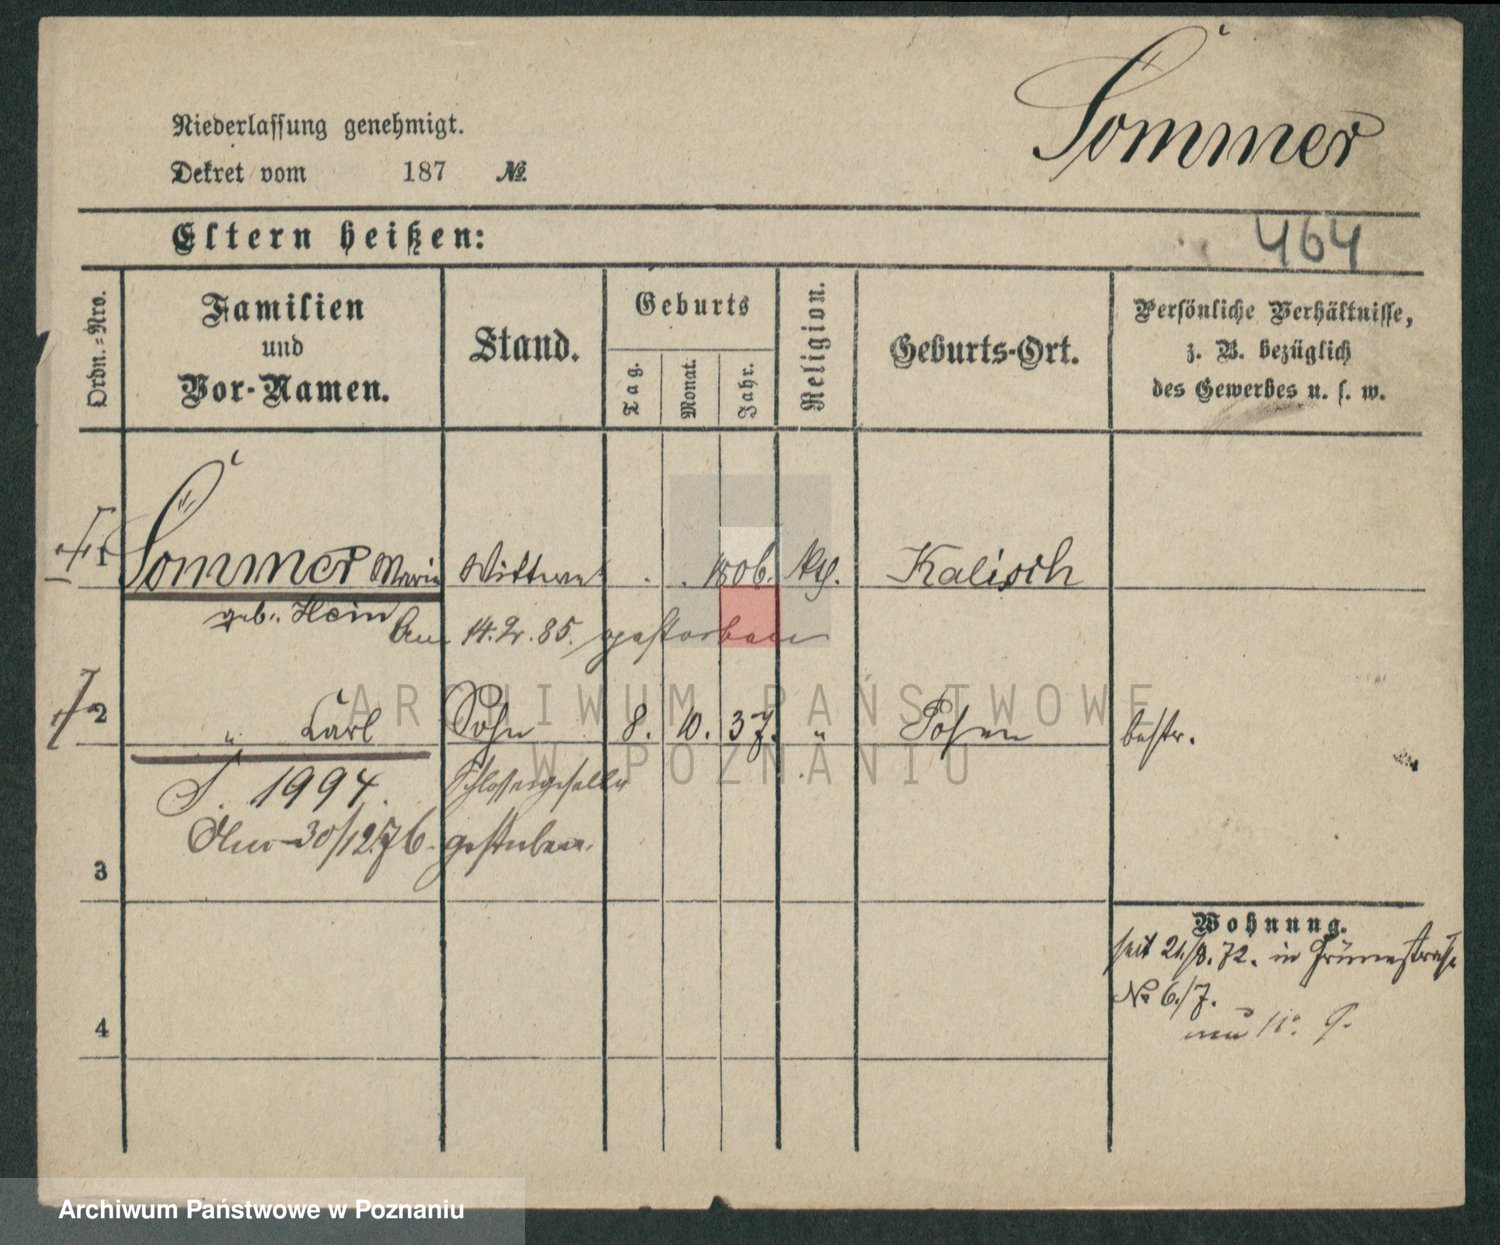 Sommer
Niederlassung genehmigt.
Dekret vom 187 №
Eltern heißen:
464
Ordn.-Nro.
Familien
und
Vor-Namen.
Stand.
Geburts
Tag.
Monat.
Jahr.
Religion.
Geburts-Ort.
Persönliche Verhältnisse,
z. B. bezüglich
des Gewerbes u. s. w.
1 Sommer Marie Wittwe . . 1806. Kalisch
geb. Hein
Am 14.2.85. gestorben
2 " Carl Sohn 8. 10. 37. " Posen bestr.
1994. Schlossergeselle
30/12.76. gestorben.
3
Wohnung.
seit 21/8.72. in Grünestraße
№ 6/7.
4
ARCHIWUM PAŃSTWOWE
W POZNANIU
Archiwum Państwowe w Poznaniu